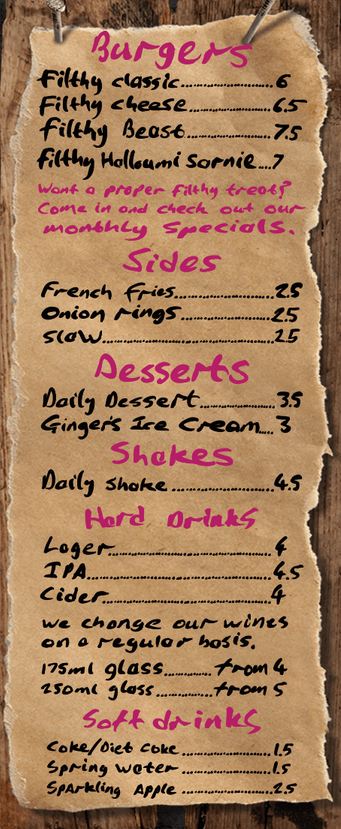 Burgers
Filthy classic..................6
Filthy cheese................6.5
Filthy Beast.................7.5
Filthy Halloumi Sarnie...7
Want a proper filthy treat?
Come in and check out our
monthly specials.
Sides
French Fries...................2.5
Onion rings..................2.5
Slaw..............................2.5
Desserts
Daily Dessert..............3.5
Ginger's Ice Cream....3
Shakes
Daily shake ...................4.5
Hard Drinks
Lager..............................4
IPA..................................4.5
Cider..............................4
we change our wines
on a regular basis.
175ml glass.........from 4
250ml glass..........from 5
Soft drinks
Coke/Diet Coke ................1.5
Spring water .................1.5
Sparkling Apple ..............2.5